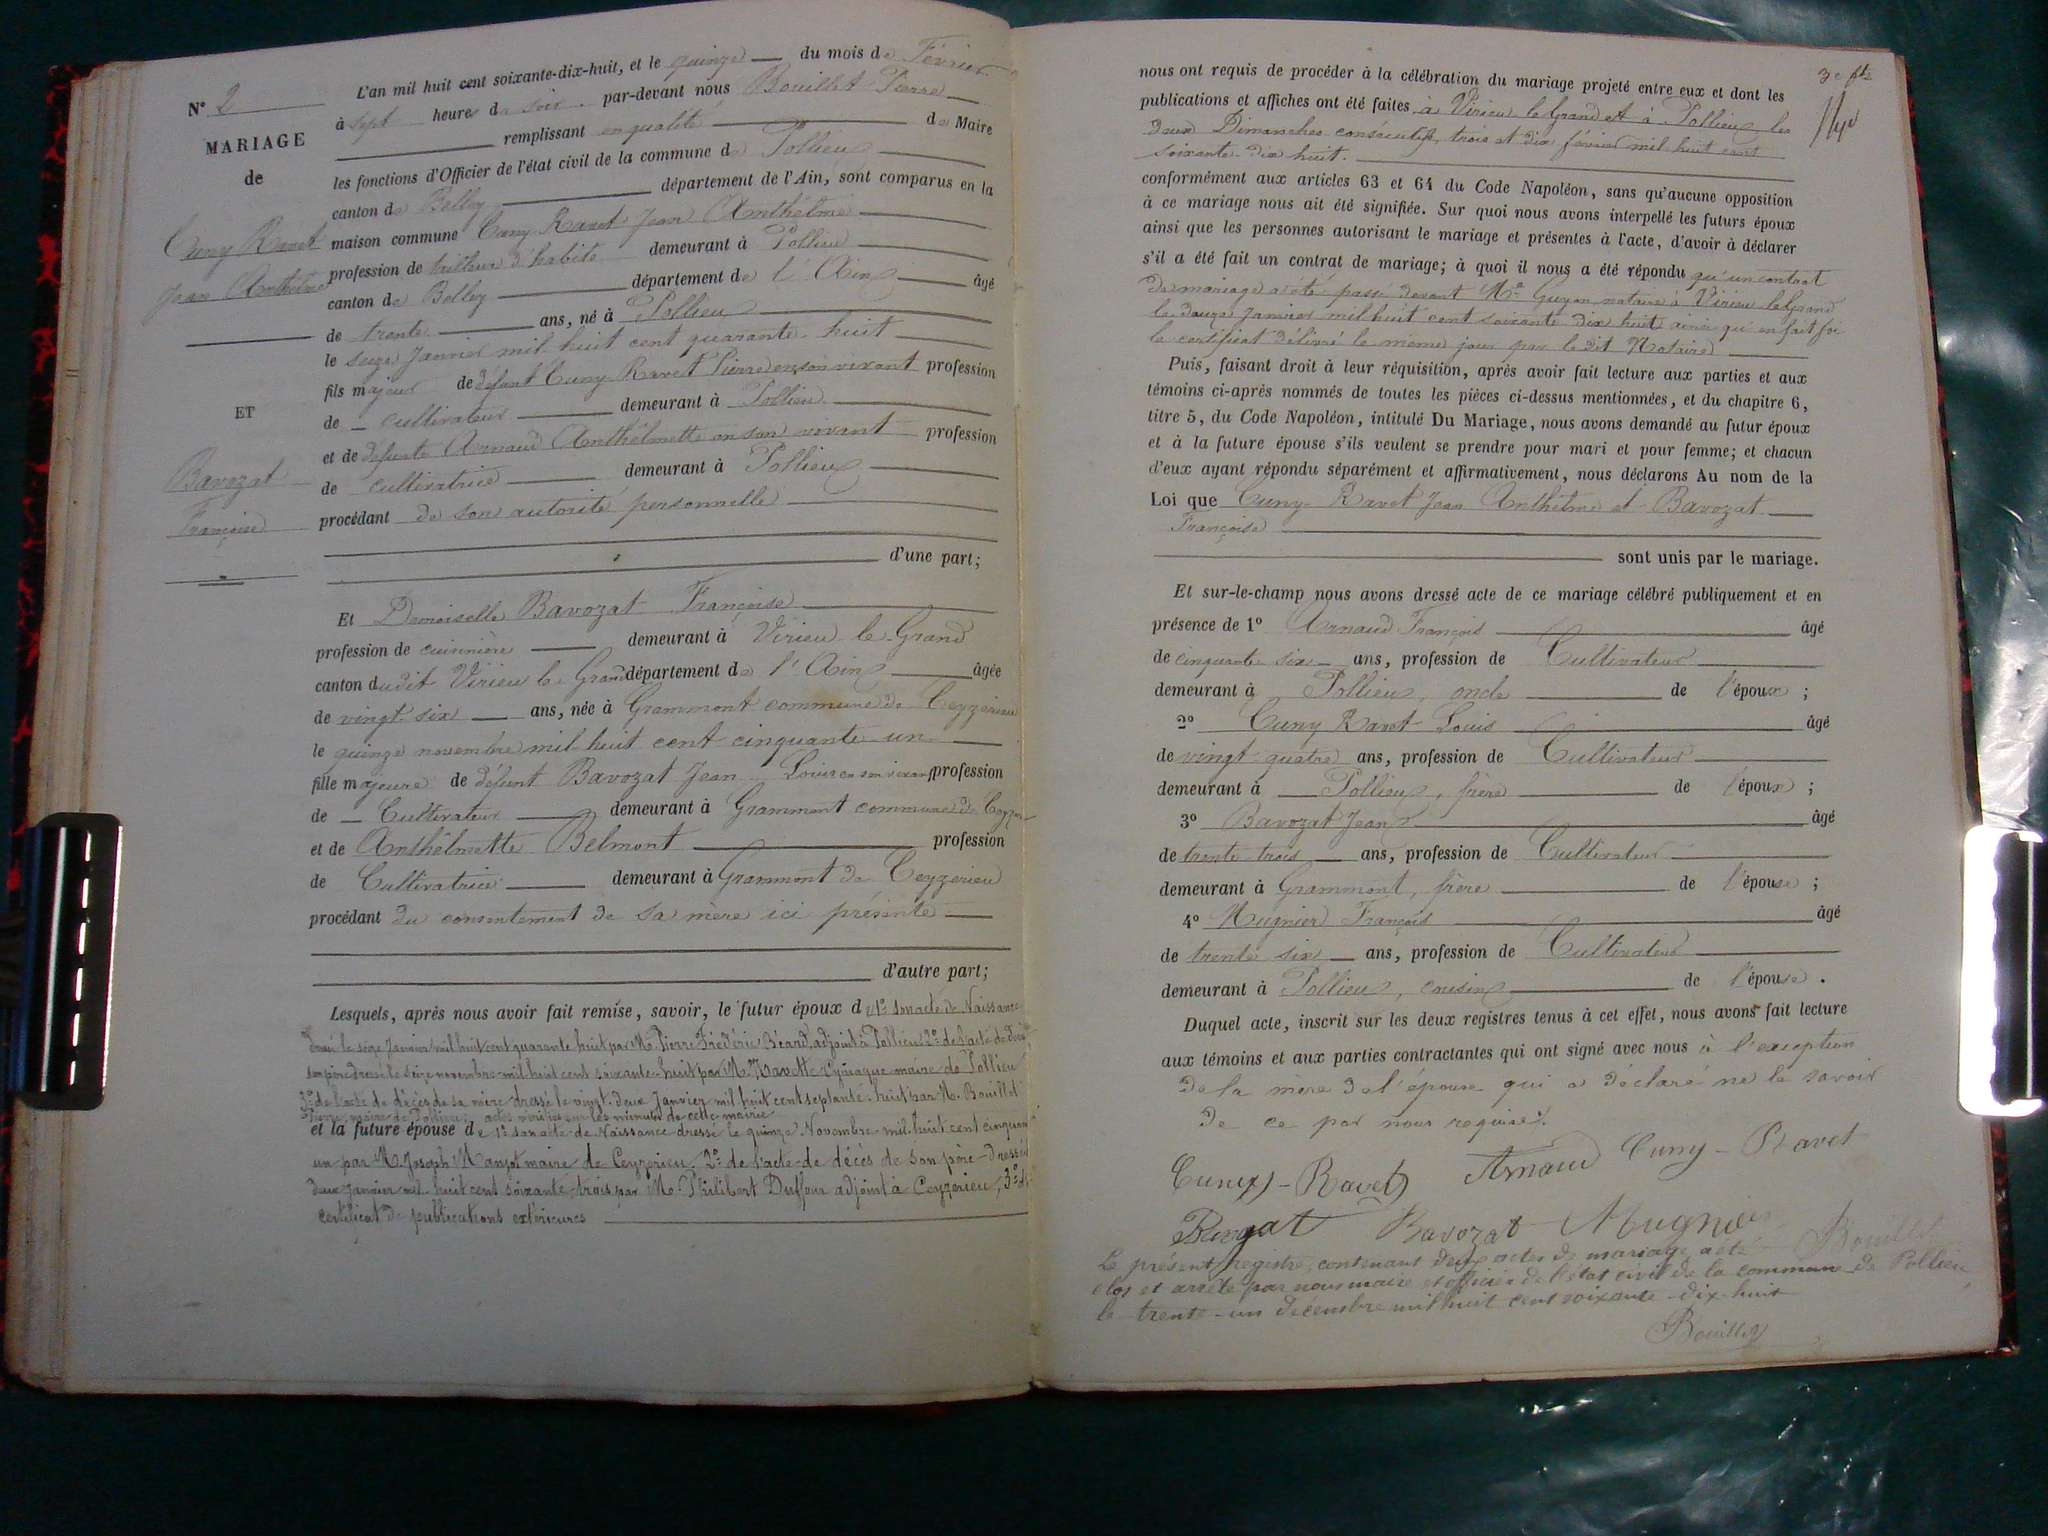 L'an mil huit cent soixante-dix-huit, et le quinze du mois de Février
à sept heures du soir par-devant nous Bouillet Pierre
remplissant en qualité de Maire
les fonctions d'Officier de l'état civil de la commune de Pollieu
canton de Belley département de l'Ain, sont comparus en la
maison commune Cuny Ravet Jean Anthelme
profession de tailleur d'habits demeurant à Pollieu
canton de Belley département de l'Ain âgé
de trente ans, né à Pollieu
le seize Janvier mil huit cent quarante-huit
fils majeur de défunt Cuny Ravet Pierre en son vivant profession
de cultivateur demeurant à Pollieu
et de défunte Arnaud Anthelmette en son vivant profession
de cultivatrice demeurant à Pollieu
procédant de son autorité personnelle
d'une part;
N° 2
MARIAGE
de
Cuny Ravet
Jean Anthelme
ET
Bavozat
Françoise
Et Demoiselle Bavozat Françoise
profession de cuisinière demeurant à Virieu le Grand
canton dudit Virieu le Grand département de l'Ain âgée
de vingt six ans, née à Grammont commune de Ceyzerieu
le quinze novembre mil huit cent cinquante un
fille majeure de défunt Bavozat Jean Louis en son vivant profession
de Cultivateur demeurant à Grammont commune de Ceyzer
et de Anthelmette Belmont profession
de Cultivatrice demeurant à Grammont de Ceyzerieu
procédant du consentement de sa mère ici présente
d'autre part;
Lesquels, après nous avoir fait remise, savoir, le futur époux de 1° son acte de Naissance
le seize Janvier mil huit cent quarante huit par M. Pierre Frédéric Béard, adjoint à Pollieu 2° de l'acte de décès
son père dressé le seize novembre mil huit cent soixante-huit par M. maire de Pollieu
3° de l'acte de décès de sa mère dressé le vingt-deux Janvier mil huit cent septante-huit par M. Bouillet
Pierre, maire de Pollieu; actes sur les minutes de cette mairie
et la future épouse de 1° son acte de Naissance dressé le quinze Novembre mil huit cent cinquante
un par M. Joseph maire de Ceyzerieu 2° de l'acte de décès de son père dressé
deux Janvier mil huit cent soixante-trois par M. Philibert Duffour adjoint à Ceyzerieu, 3° du
certificat de publications extérieures
3e fle
nous ont requis de procéder à la célébration du mariage projeté entre eux et dont les
publications et affiches ont été faites à Virieu le Grand et à Pollieu les
deux Dimanches consécutifs, trois et dix février mil huit cent
soixante-dix huit.
conformément aux articles 63 et 64 du Code Napoléon, sans qu'aucune opposition
à ce mariage nous ait été signifiée. Sur quoi nous avons interpellé les futurs époux
ainsi que les personnes autorisant le mariage et présentes à l'acte, d'avoir à déclarer
s'il a été fait un contrat de mariage; à quoi il nous a été répondu qu'un contrat
de mariage a été passé devant Me Guyon notaire à Virieu le Grand
le douze Janvier mil huit cent soixante dix huit ainsi qu'en fait foi
le certificat délivré le même jour par le dit Notaire
Puis, faisant droit à leur réquisition, après avoir fait lecture aux parties et aux
témoins ci-après nommés de toutes les pièces ci-dessus mentionnées, et du chapitre 6,
titre 5, du Code Napoléon, intitulé Du Mariage, nous avons demandé au futur époux
et à la future épouse s'ils veulent se prendre pour mari et pour femme; et chacun
d'eux ayant répondu séparément et affirmativement, nous déclarons Au nom de la
Loi que Cuny-Ravet Jean Anthelme et Bavozat
Françoise
sont unis par le mariage.
Et sur-le-champ nous avons dressé acte de ce mariage célébré publiquement et en
présence de 1° Arnaud François âgé
de cinquante six ans, profession de Cultivateur
demeurant à Pollieu, oncle de l'époux;
2° Cuny Ravet Louis âgé
de vingt-quatre ans, profession de Cultivateur
demeurant à Pollieu, frère de l'époux;
3° Bavozat Jean âgé
de trente trois ans, profession de Cultivateur
demeurant à Grammont, frère de l'épouse;
4° Mugnier François âgé
de trente six ans, profession de Cultivateur
demeurant à Pollieu, cousin de l'épouse.
Duquel acte, inscrit sur les deux registres tenus à cet effet, nous avons fait lecture
aux témoins et aux parties contractantes qui ont signé avec nous à l'exception
de la mère de l'épouse qui a déclaré ne le savoir
de ce par nous requise.
Cuny-Ravet Arnaud Cuny-Ravet
Bavozat Bavozat Mugnier Bouillet
Le présent registre, contenant deux actes de mariage, a été
clos et arrêté par nous maire et officier de l'état civil de la commune de Pollieu,
le trente-un décembre mil huit cent soixante-dix-huit
Bouillet